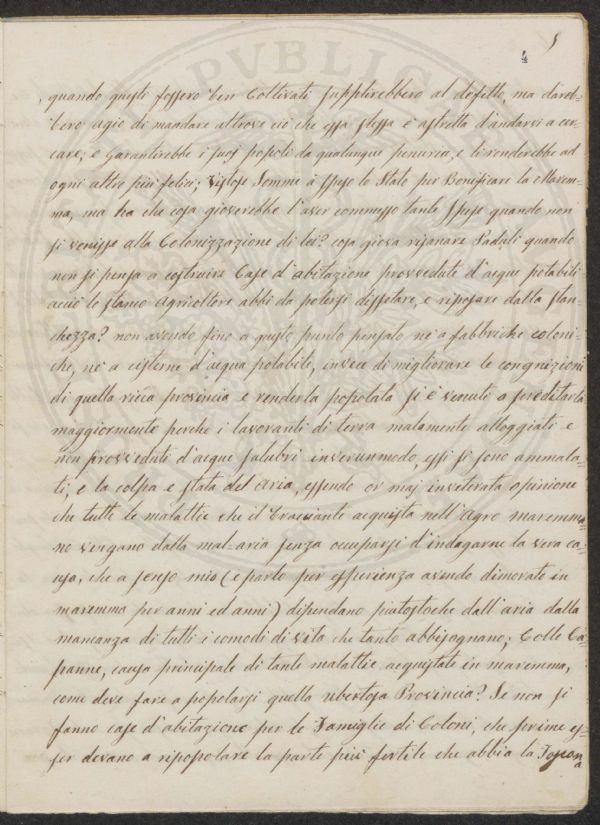 5
4
quando questi fossero ben Coltivati supplirebbero al difetto, ma dareb=
bero agio di mandare altrove ciò che essa stessa è astretta d'andarsi a cer=
care, e Garantirebbe i suoj popoli da qualunque penuria, e li renderebbe ad
ogni altro più felici; Vistose Somme à speso lo Stato per Bonificare la Marem=
ma, ma ha che cosa gioverebbe l'aver commesso tante spese quando non
si venisse alla Colonizzazione di lei? cosa giova risanare Paduli quando
non si pensa a costruire Case d'abitazione provvedute d'acque potabili
acciò lo stanco Agricoltore abbi da potersi dissetare, e riposare dalla stan=
chezza? non avendo fino a questo punto pensato nè a fabbriche coloni=
che, nè a cisterne d'acqua potabile, invece di migliorare le congnizioni
di quella ricca provincia e renderla popolata si è venuti a screditarla
maggiormente perche i lavoranti di terra malamente alloggiati e
non provveduti d'acque salubri inverunmodo, essi si sono ammala=
ti, e la colpa e stata del aria, essendo or maj inveterata opinione
che tutte le malattie che il Bracciante acquista nell'Agro maremma=
no vengano dalla mal=aria senza occuparsi d'indagarne la vera ca=
usa, che a senso mio (e parlo per esperienza avendo dimorato in
maremma per anni ed anni) dipendano piutostoche dall'aria dalla
mancanza di tutti i comodi di vita che tanto abbisognano; Colle Ca=
panne, causa principale di tante malattie acquistate in maremma,
come deve fare a popolarsi quella ubertosa Provincia? Se non si
fanno case d'abitazione per le Famiglie di Coloni, che prime es=
ser devano a ripopolare la parte più fertile che abbia la Toscana